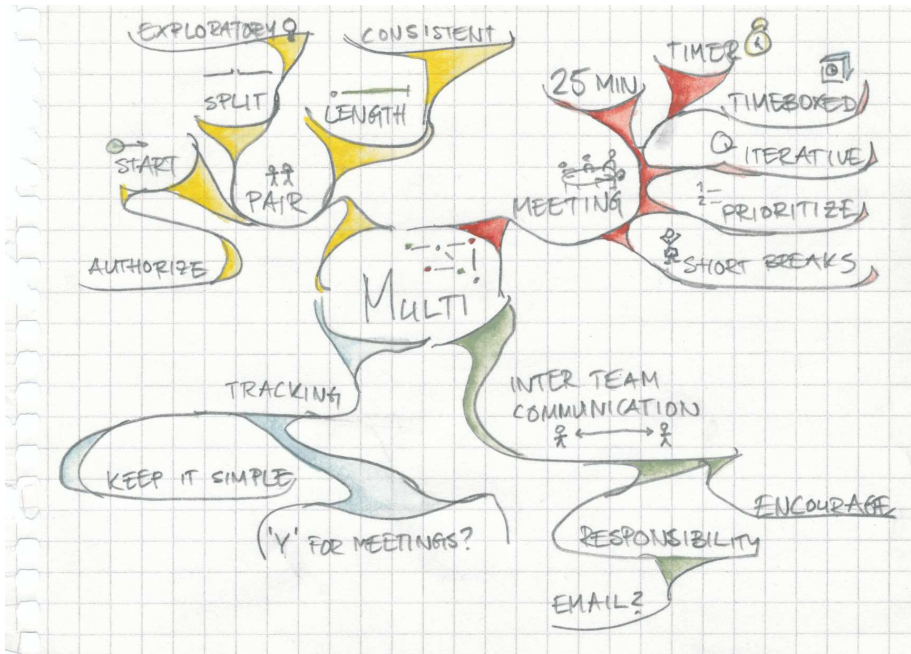 EXPLORATORY
CONSISTENT
SPLIT
LENGTH
START
PAIR
AUTHORIZE
25 MIN
TIMER
TIMEBOXED
ITERATIVE
MEETING
1-
2-
PRIORITIZE
SHORT BREAKS
MULTI
TRACKING
KEEP IT SIMPLE
'Y' FOR MEETINGS?
INTER TEAM
COMMUNICATION
ENCOURAGE
RESPONSIBILITY
EMAIL?